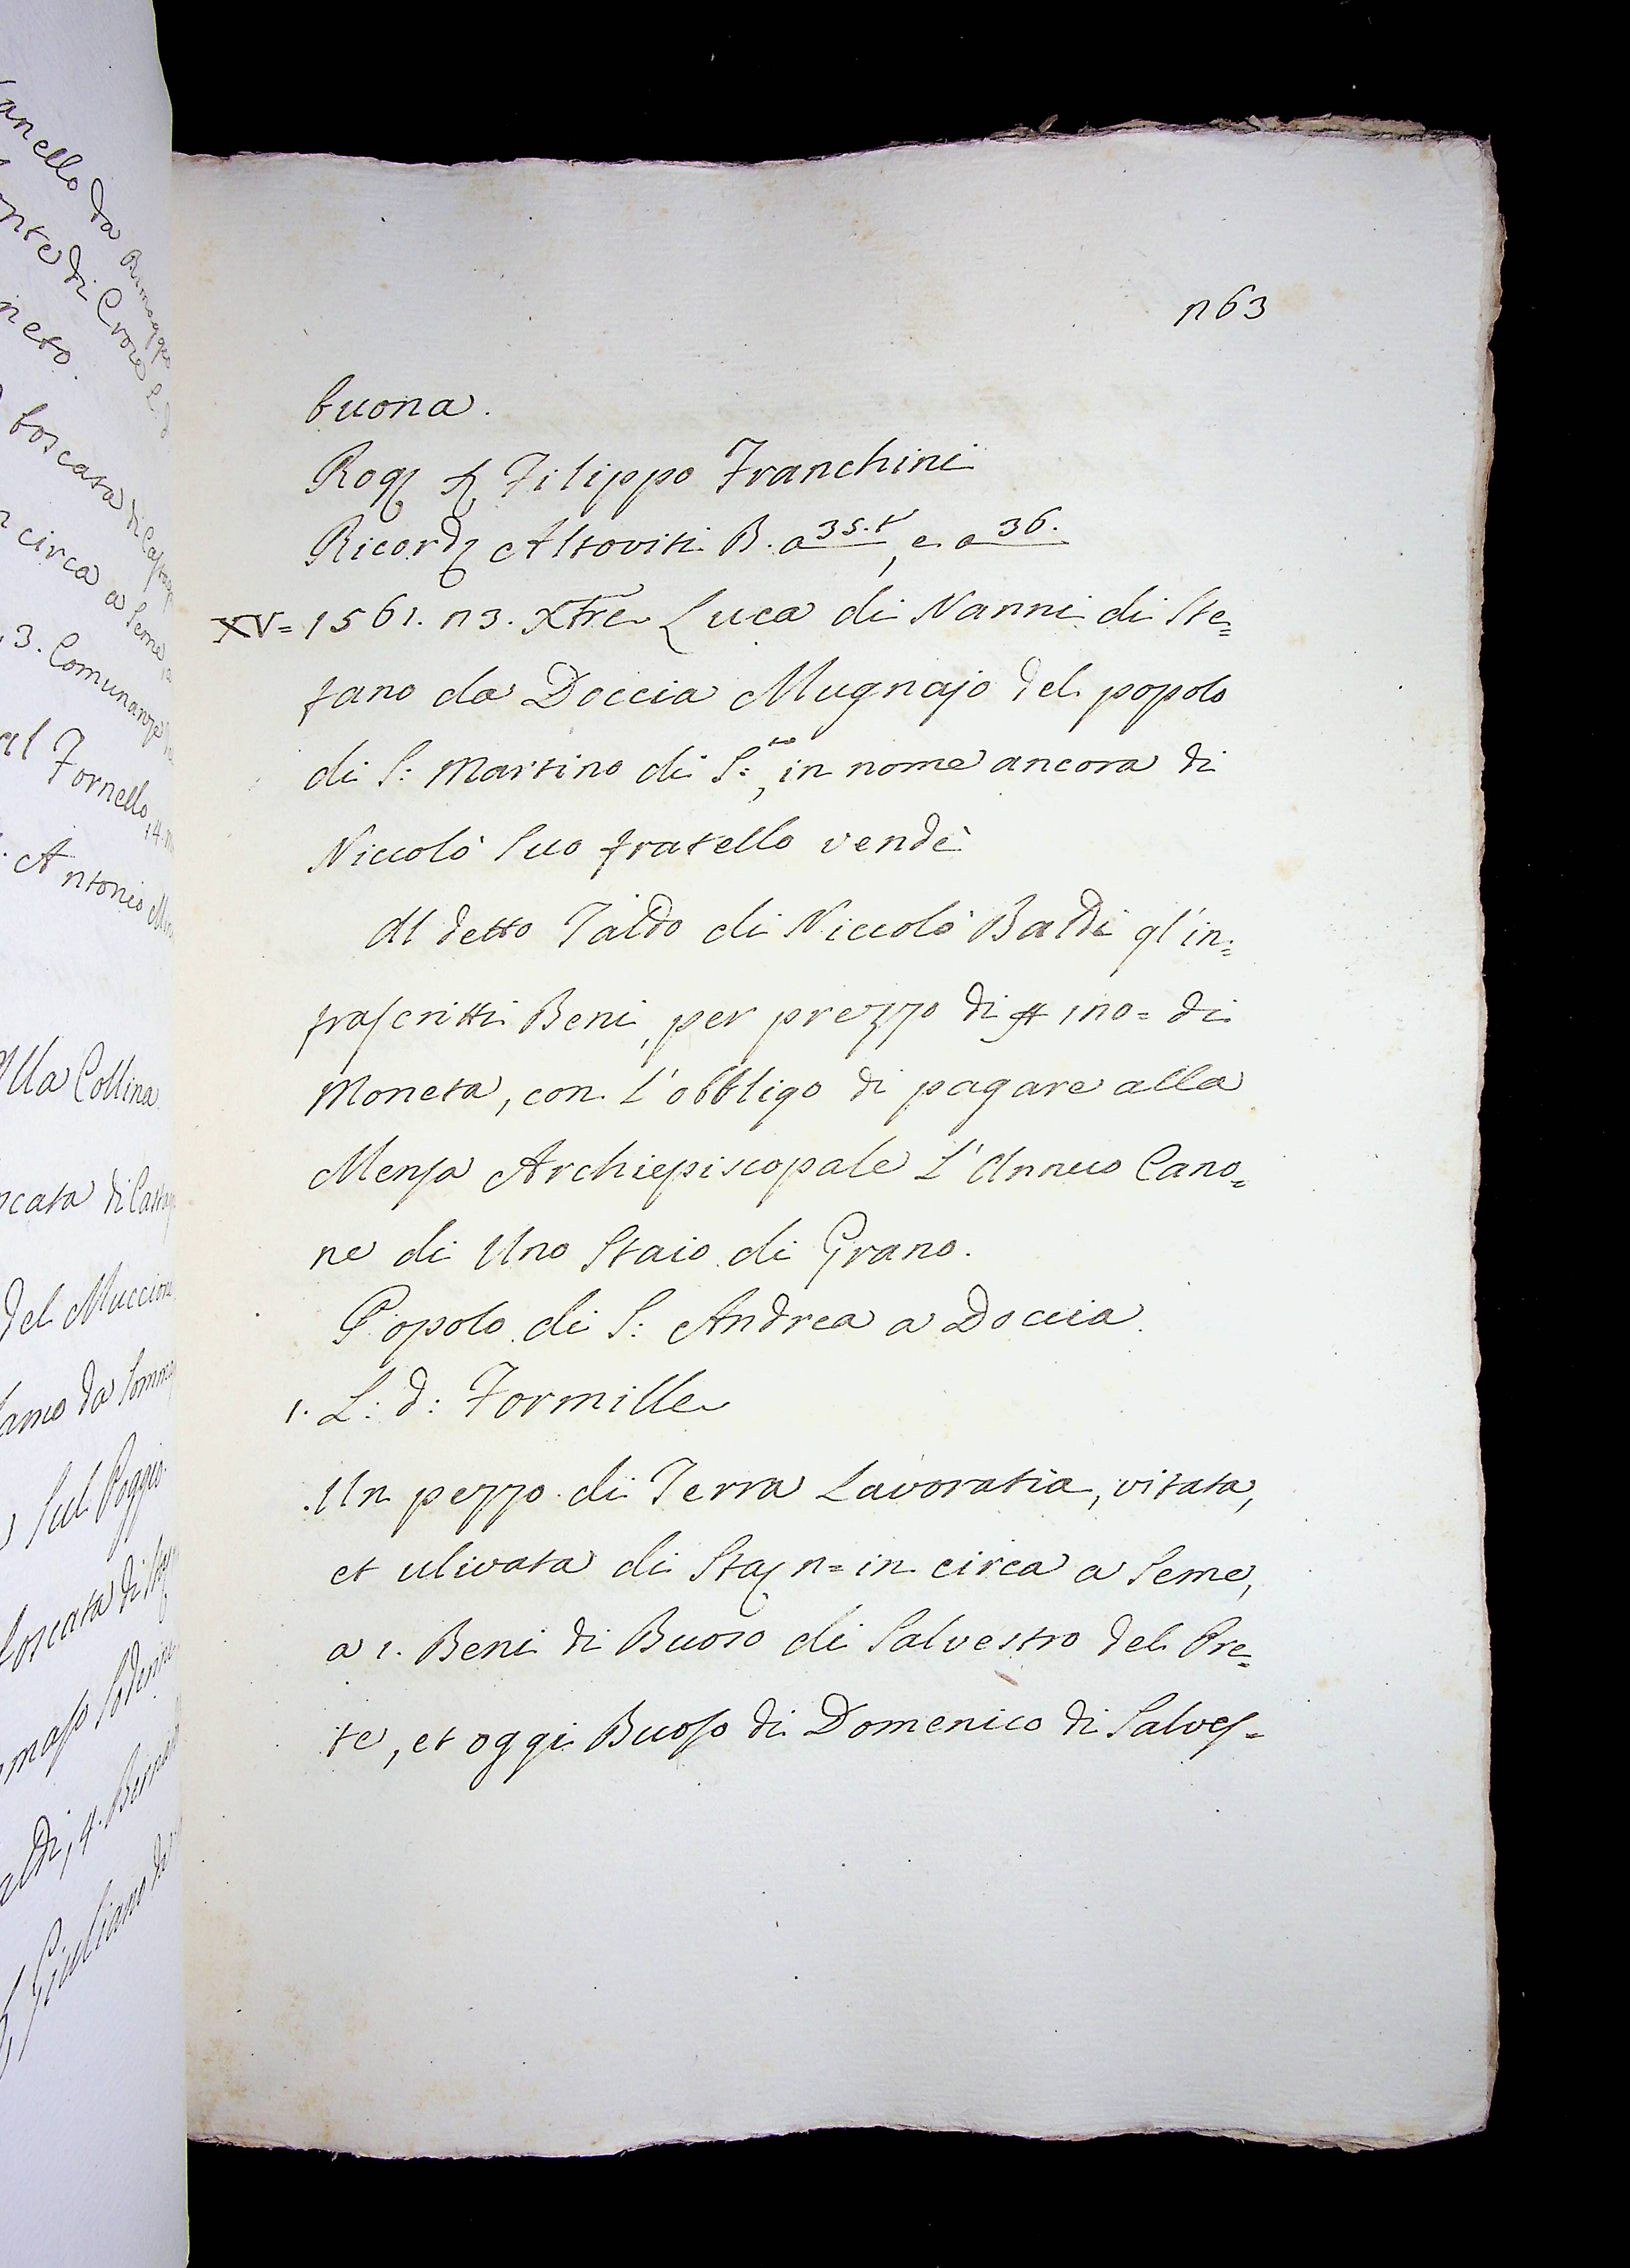 anello da Rimaggio
onte di Croce e d
neto.
boscata di Castag
circa a Seme, a
, 3. Comunanza
al Fornello, 4. M
Antonio
Alla Collina
scata di Castag
del Muccione
da Somma
Sul Poggio
boscata di
maso Soderini
aldi, 4. Bernar
Giuliano di
n63
buona.
Rog. Filippo Franchini
Ricordz Altoviti B. a 35.t, e a 36.
XV= 1561. n3. Xbre Luca di Nanni di Ste=
fano da Doccia Mugnajo del popolo
di S: Martino di S:to, in nome ancora di
Niccolò Suo fratello vendè
Al detto Taldo di Niccolò Baldi gl'in=
frascritti Beni, per prezzo di ff 1n0= di
Moneta, con L'obbligo di pagare alla
Mensa Archiepiscopale L'Annuo Cano=
ne di Uno Staio di Grano.
Popolo di S: Andrea a Doccia.
1. L: d: Formille
Un pezzo di Terra Lavoratia, vitata,
et ulivata di Sta n= in circa a Seme,
a 1. Beni di Buoso di Salvestro del Pre=
te, et oggi Buoso di Domenico di Salves=